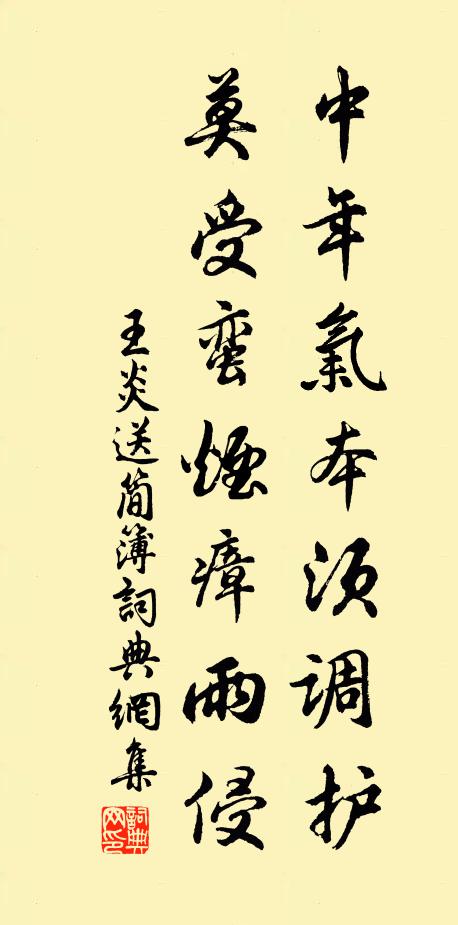 中年氣本须调护
莫受蛮煙瘴雨侵
王炎送简簿詞典網集
詞典網印